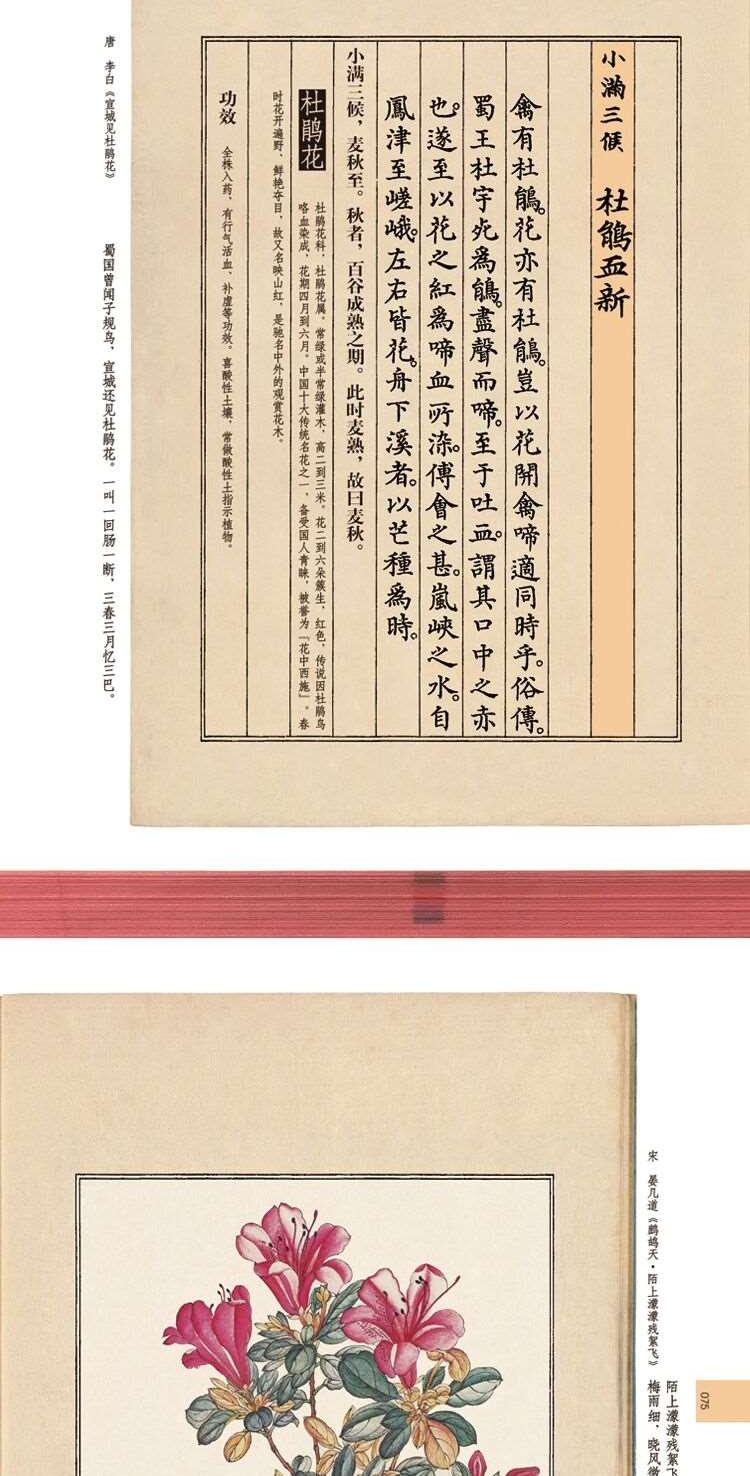 小滿三候 杜鵑血新
禽有杜鵑。花亦有杜鵑。豈以花開禽啼適同時乎。俗傳。
蜀王杜宇死為鵑。盡聲而啼。至于吐血。謂其口中之赤
也。遂至以花之紅為啼血所染。傅會之甚。嵐峽之水。自
鳳津至嵯峨。左右皆花。舟下溪者。以芒種為時。
小满三候，麦秋至。秋者，百谷成熟之期。此时麦熟，故曰麦秋。
杜鹃花
杜鹃花科，杜鹃花属。常绿或半常绿灌木，高二到三米。花二到六朵簇生，红色，传说因杜鹃鸟
咯血染成，花期四月到六月。中国十大传统名花之一，备受国人青睐，被誉为「花中西施」。春
时花开遍野，鲜艳夺目，故又名映山红，是驰名中外的观赏花木。
功效 全株入药，有行气活血、补虚等功效。喜酸性土壤，常做酸性土指示植物。
唐 李白《宣城见杜鹃花》 蜀国曾闻子规鸟，宣城还见杜鹃花。一叫一回肠一断，三春三月忆三巴。
075
宋 晏几道《鹧鸪天·陌上濛濛残絮飞》
陌上濛濛残絮飞
梅雨细，晓风微